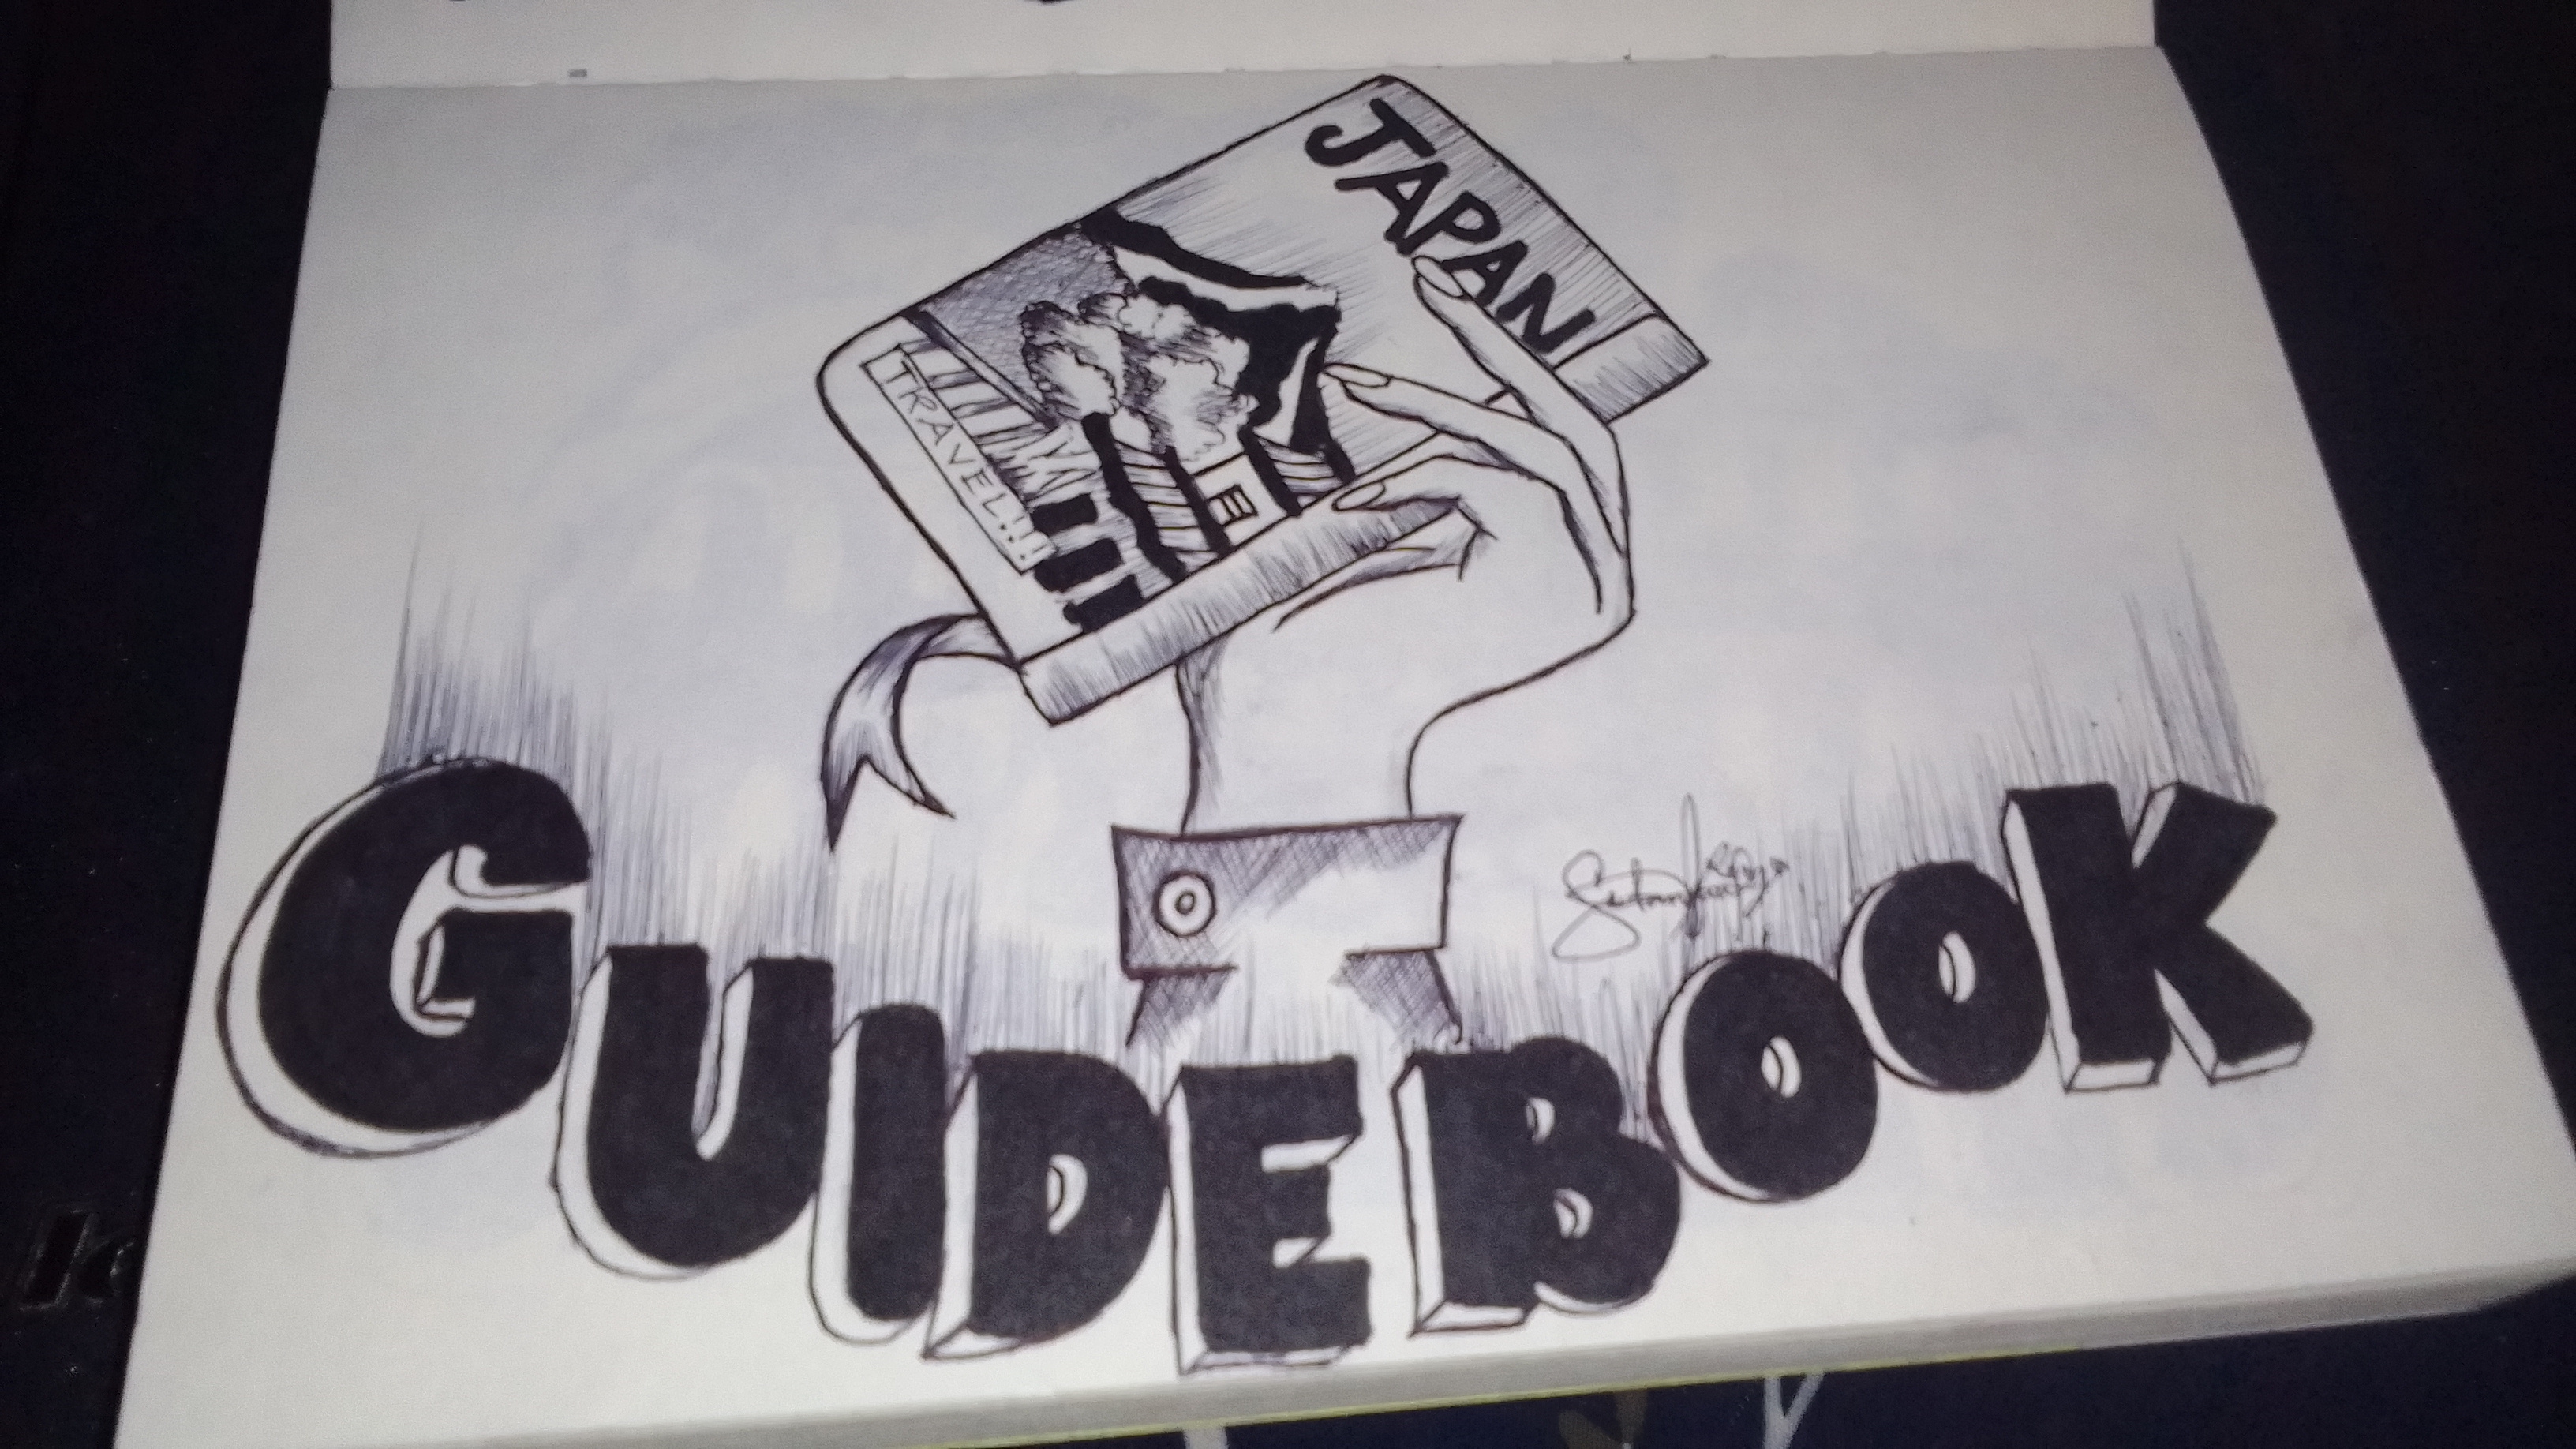 JAPAN
TRAVEL!!!
GUIDEBOOK